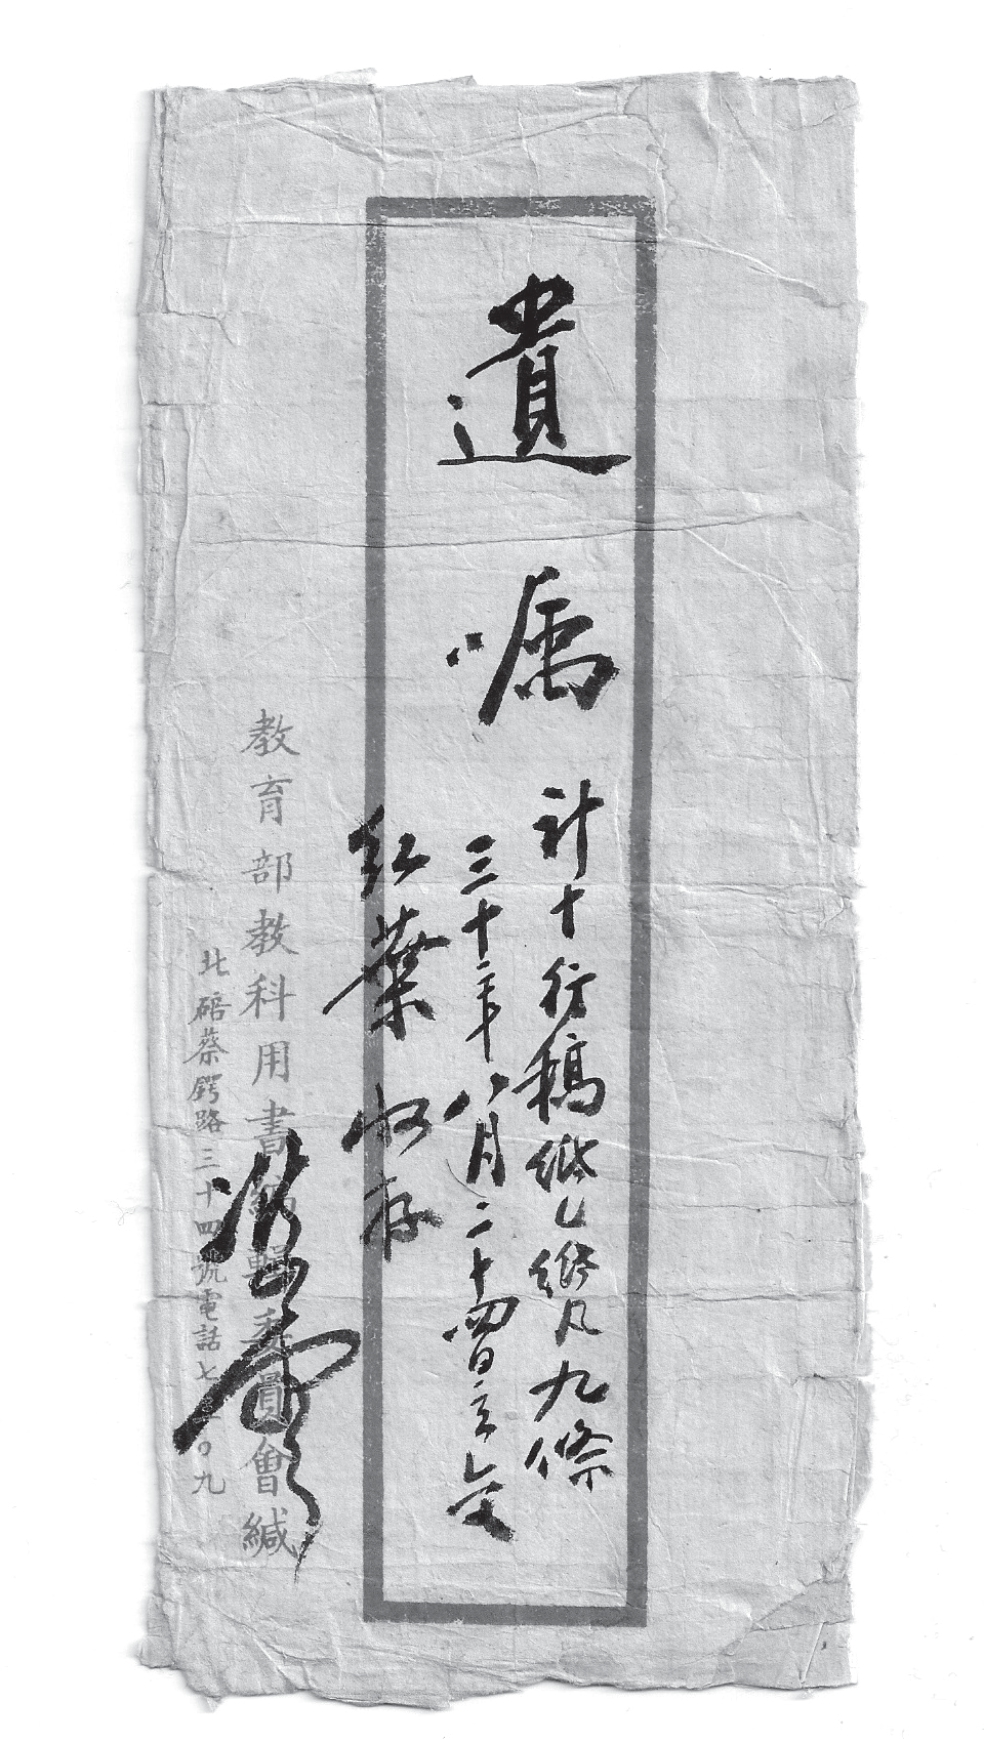 遺嘱
計十行稿紙凡九條
三十二年八月二十四日立
紅葉收存
教育部教科用書編輯委員會緘
北碚蔡鍔路三十四號電話七〇九